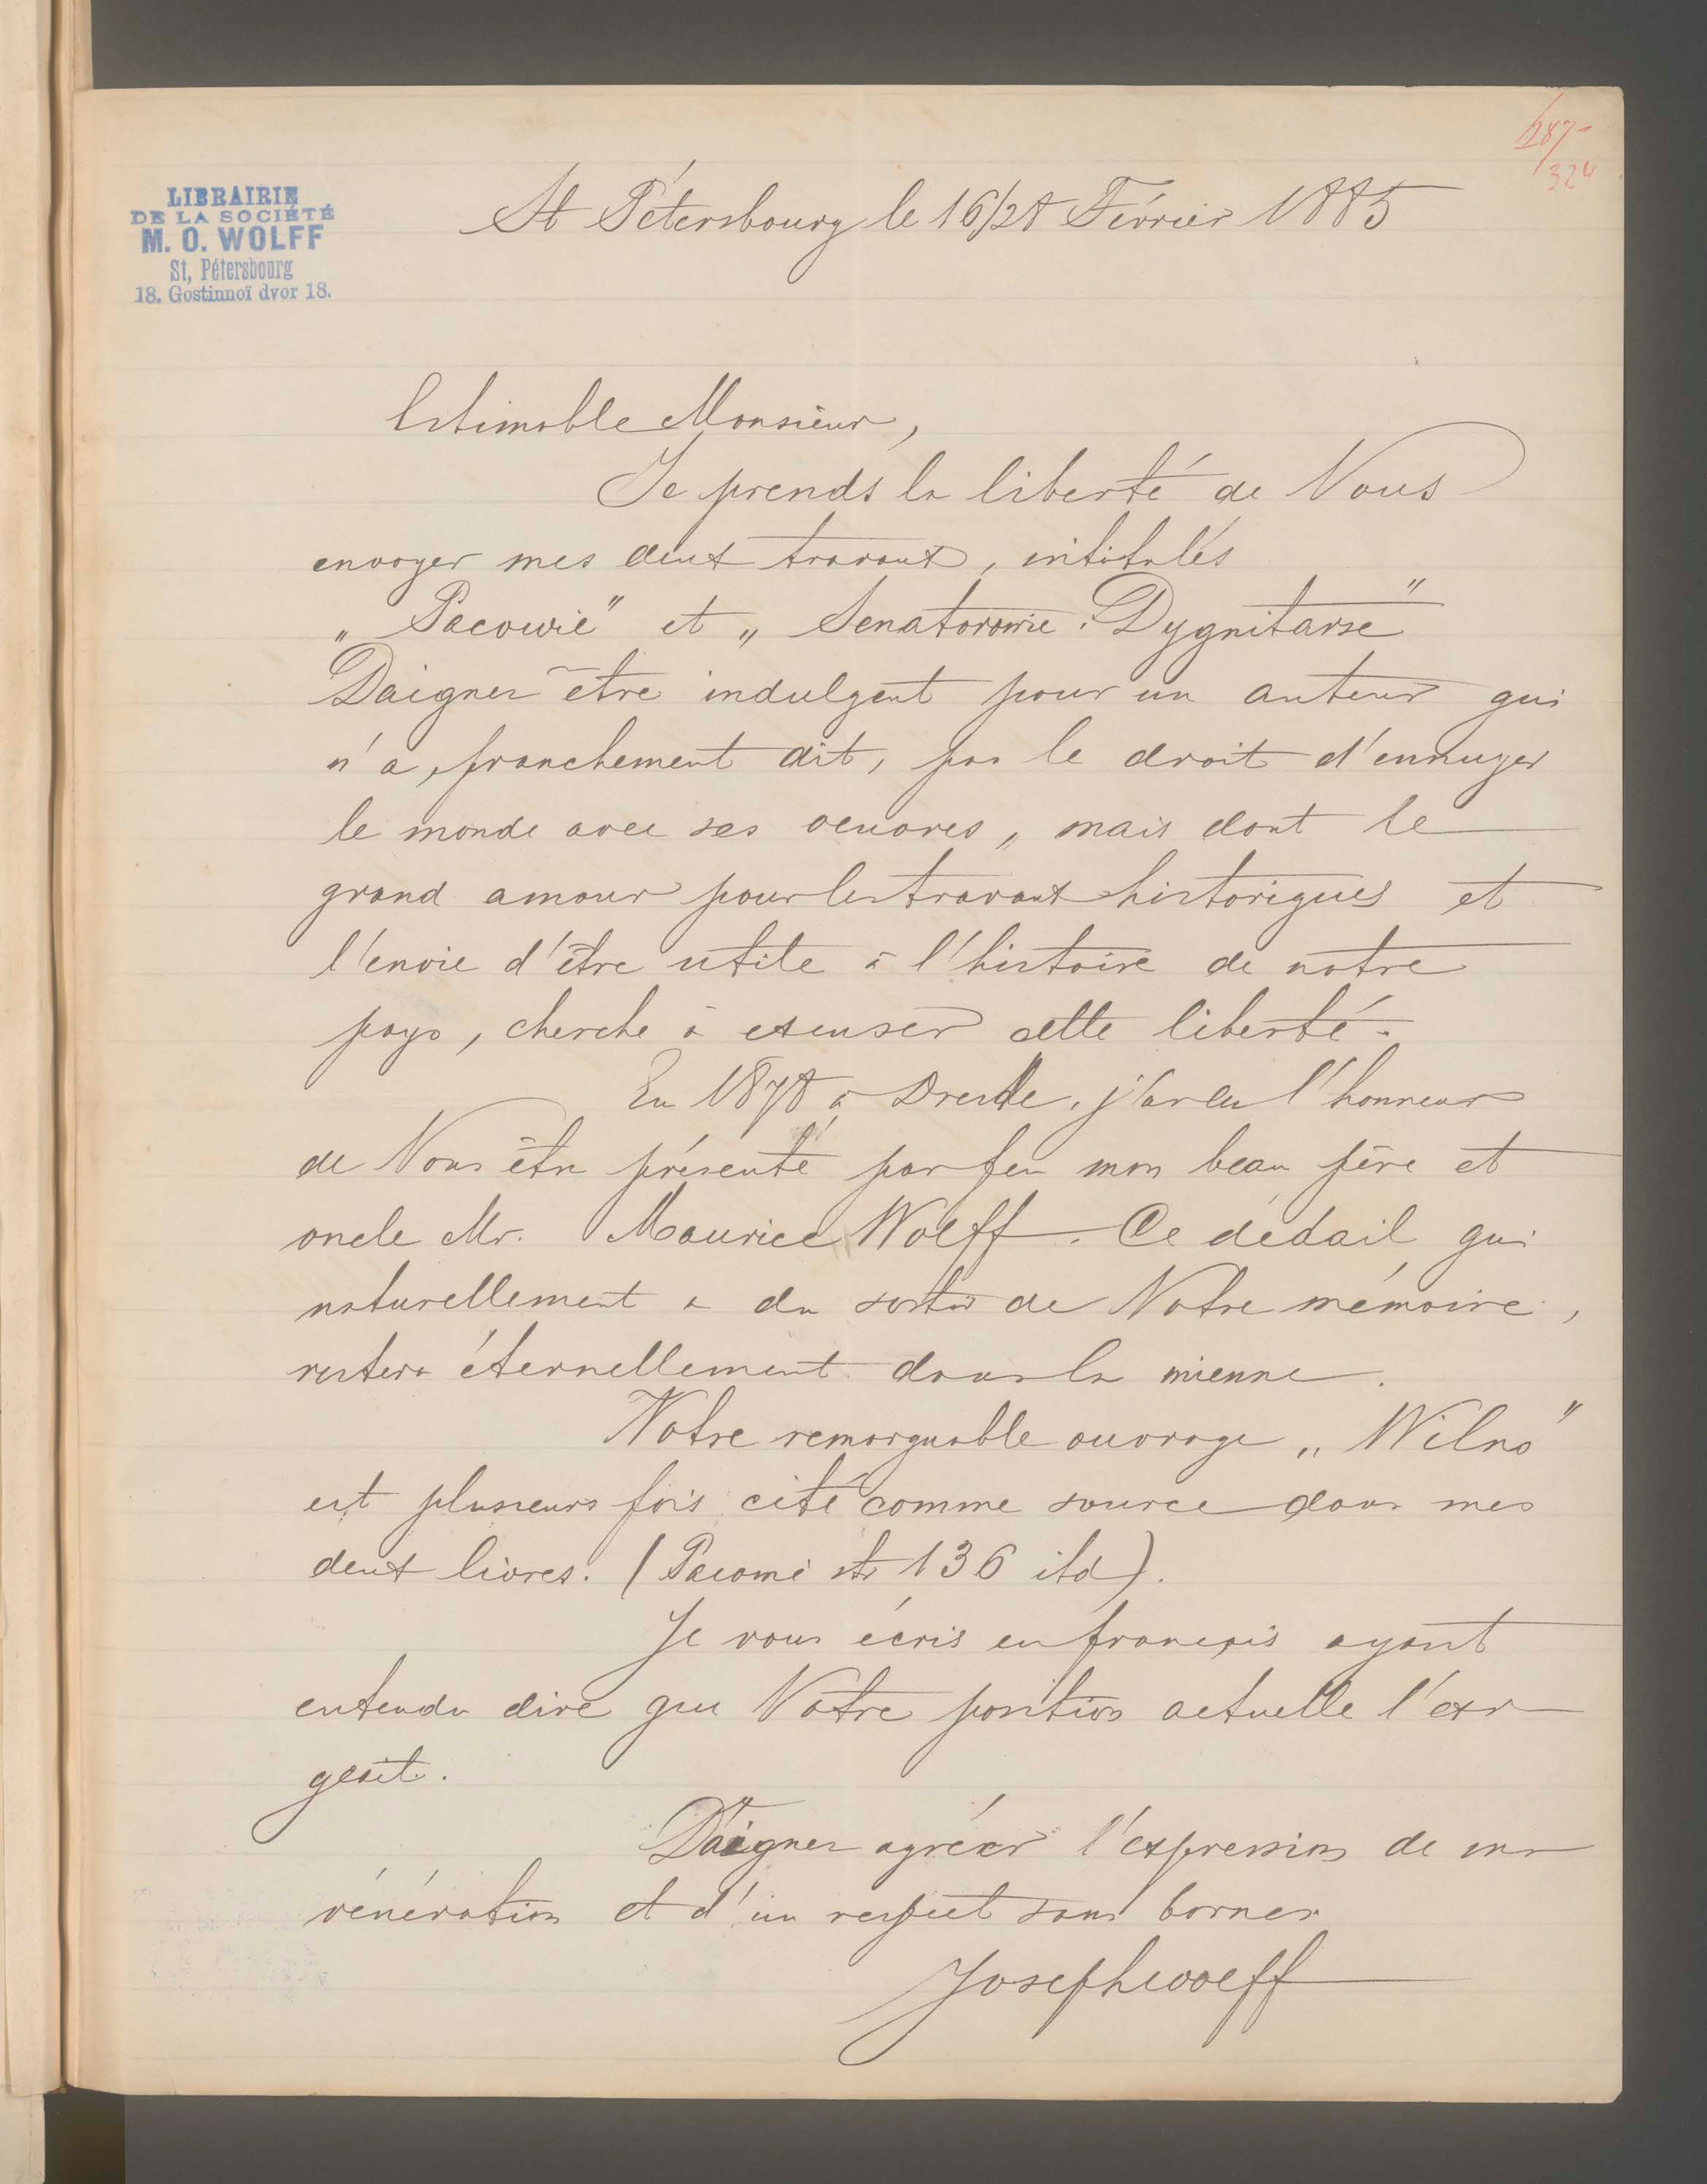 187-
324
LIBRAIRIE
DE LA SOCIÉTÉ
M. O. WOLFF
St, Pétersbourg
18. Gostinnoï dvor 18.
St Pétersbourg le 16/28 Février 1885
Estimable Monsieur,
Je prends la liberté de Vous
envoyer mes deux travaux, intitulés
„Pacowie" et „Senatorowie i Dygnitarze"
Daignez être indulgent pour un auteur qui
n'a, franchement dit, pas le droit d'ennuyer
le monde avec ses oeuvres, mais dont le
grand amour pour les travaux historiques et
l'envie d'être utile à l'histoire de notre
pays, cherche à excuser cette liberté.
En 1878 à Dresde, j'ai eu l'honneur
de Vous être présenté par feu mon beau père et
oncle Mr. Maurice Wolff. Ce dédail qui
naturellement a du sortir de Votre mémoire,
restera éternellement dans la mienne.
Votre remarquable ouvrage „Wilno"
est plusieurs fois cité comme source dans mes
deux livres. (Pacowie str 136 itd).
Je vous écris en français ayant
entendu dire que Votre position actuelle l'exi
geait.
Daignez agréer l'expression de ma
vénération et d'un respect sans bornes
Joseph Wolff